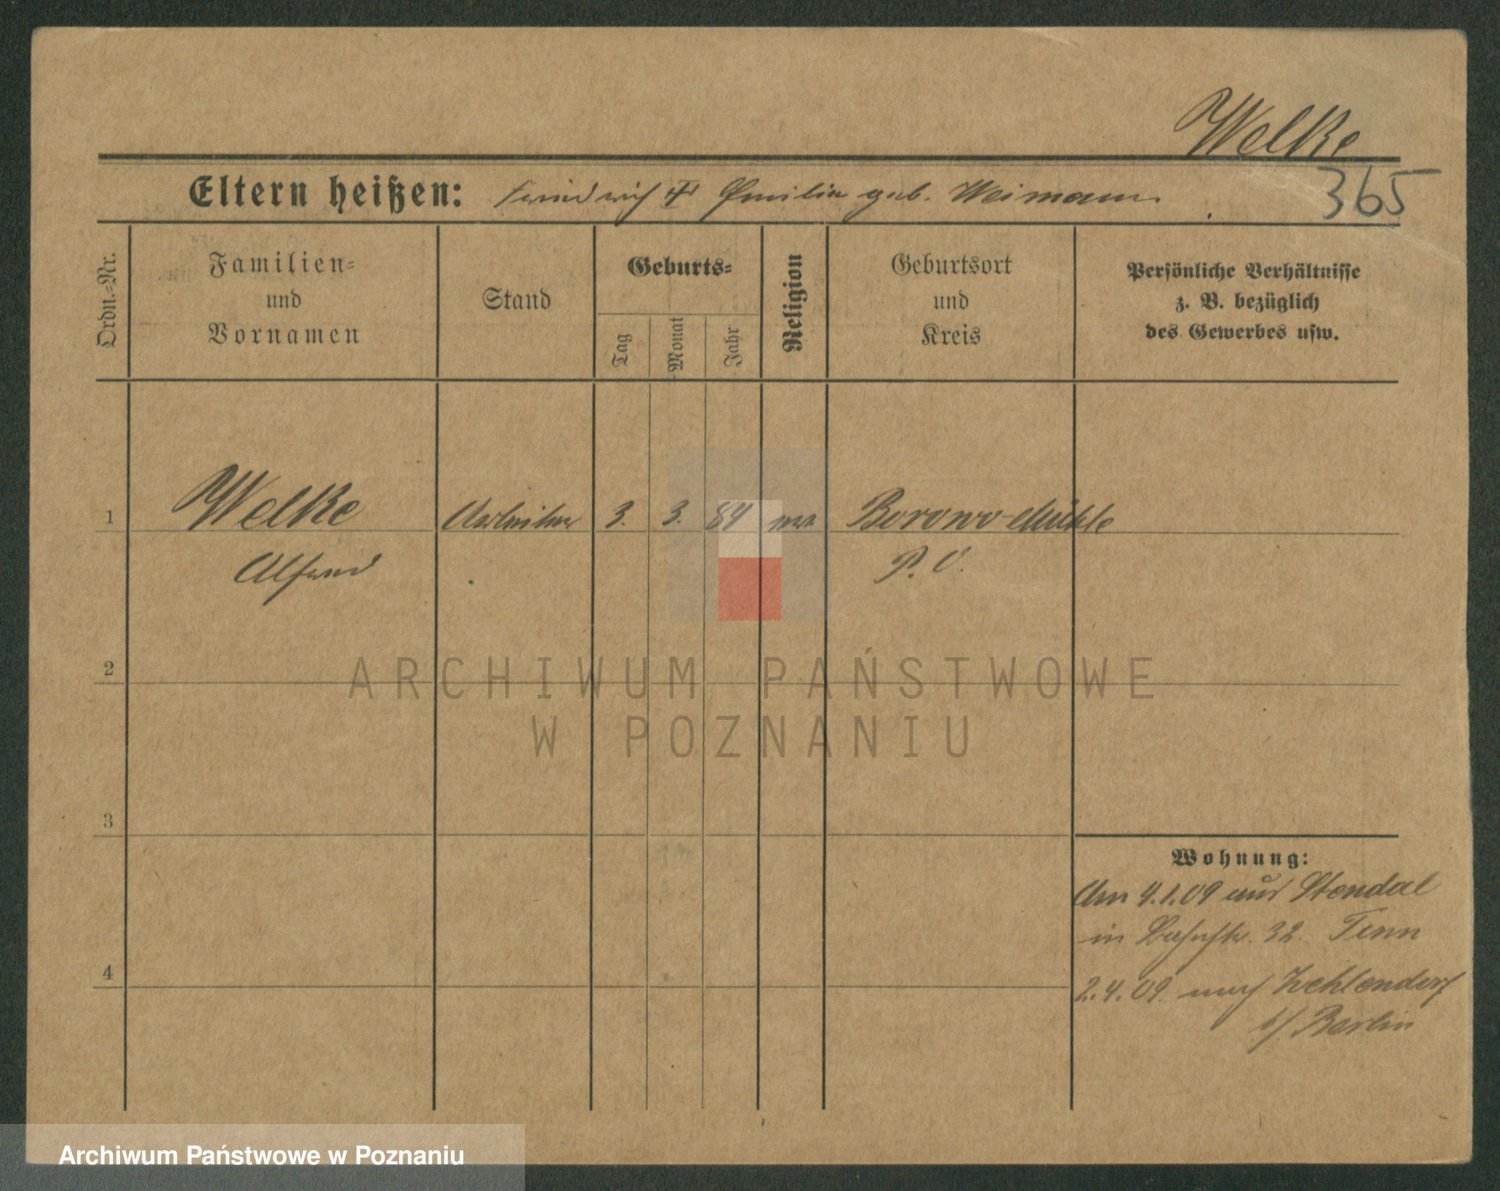 Welke
365
Eltern heißen: Friedrich Emilia geb. Weimann
Ordn.-Nr.
Familien-
und
Vornamen
Stand
Geburts-
Tag
Monat
Jahr
Religion
Geburtsort
und
Kreis
Persönliche Verhältnisse
z. B. bezüglich
des Gewerbes usw.
1 Welke Arbeiter 3. 3. 84 ev. Borowo-Mühle
Alfred P. O.
2
3
4
Wohnung:
Am 4.1.09 aus Stendal
in 32.
2.4.09. nach Zehlendorf
b/ Berlin
ARCHIWUM PAŃSTWOWE
W POZNANIU
Archiwum Państwowe w Poznaniu